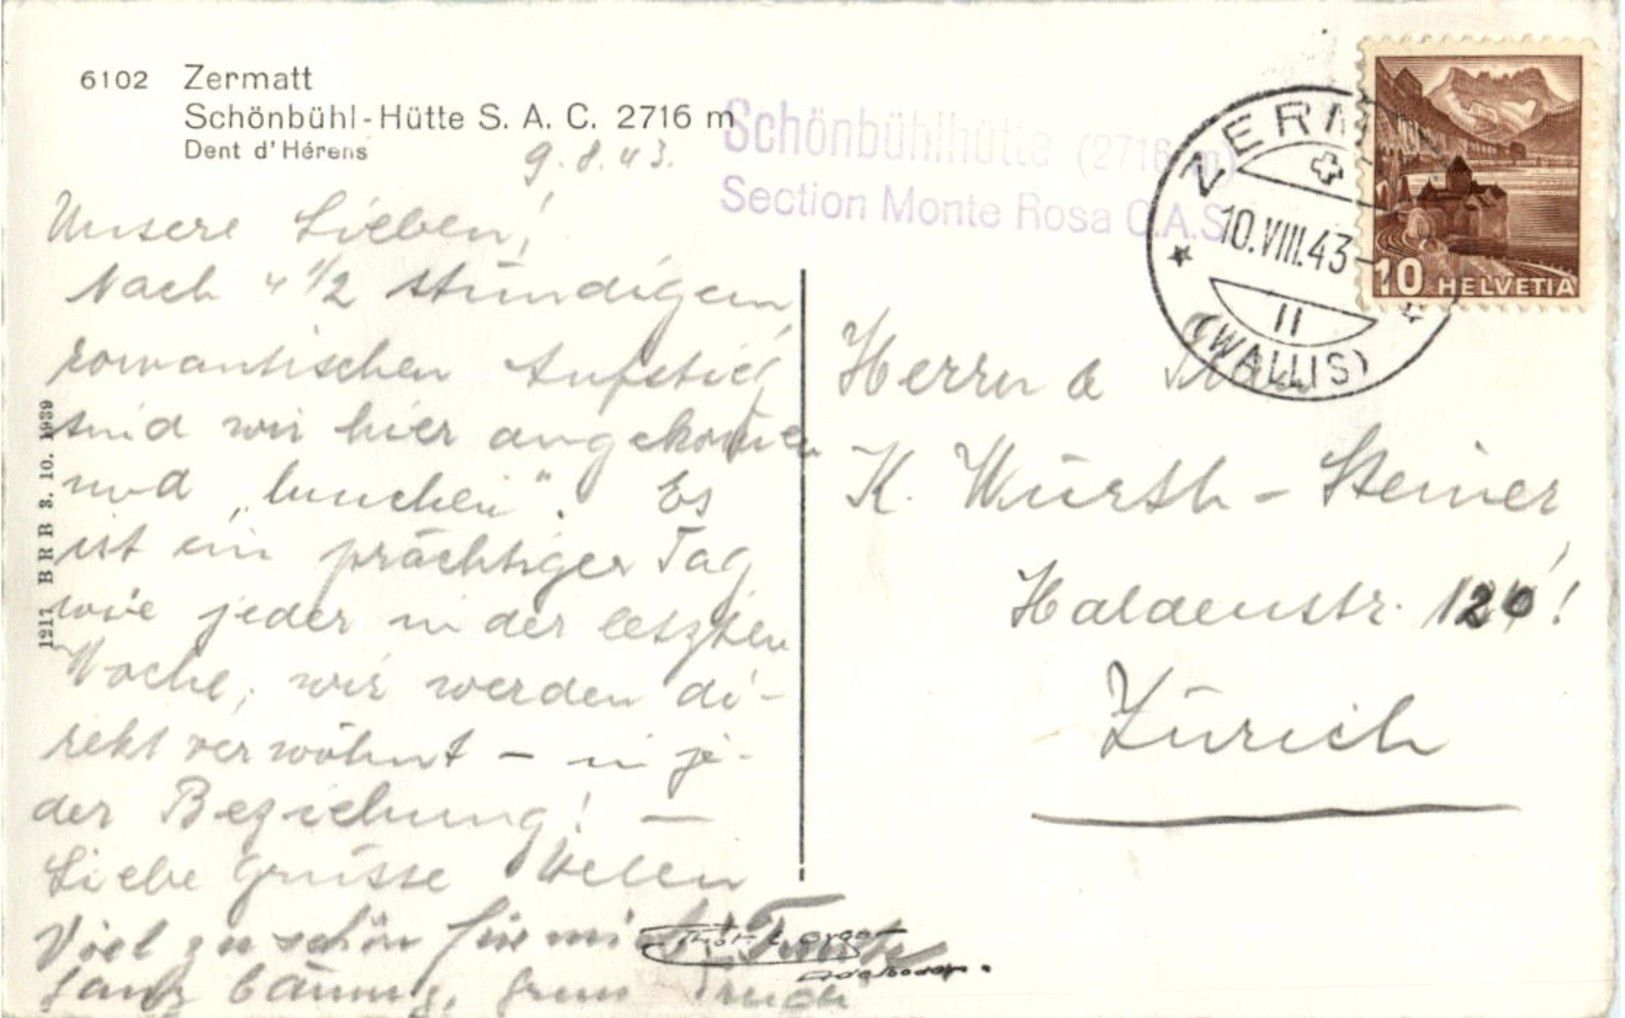 6102 Zermatt
Schönbühl-Hütte S. A. C. 2716 m
Dent d'Hérens
9.8.43.
Schönbühlhütte (2716 m)
Section Monte Rosa C.A.S.
ZERM
10.VIII.43-
11
(WALLIS)
10 HELVETIA
Unsere Lieben!
Nach 4 1/2 stündigem
romantischen Aufstieg
sind wir hier angekommen
und "lunchen". Es
ist ein prächtiger Tag
wie jeder in der letzten
Woche, wir werden di-
rekt verwöhnt – in je-
der Beziehung! —
Liebe Grüsse Helen
Viel zu schön für mich
ganz
Herrn & Frau
K. Würth-Steiner
Haldenstr. 120!
Zürich
1911 BRB 3. 10. 1939
Adelboden.